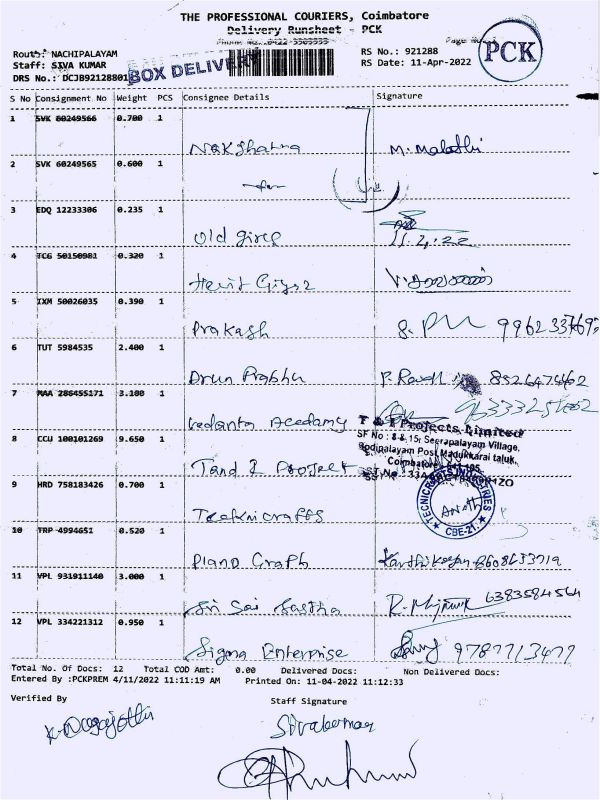 THE PROFESSIONAL COURIERS, Coimbatore
Delivery Runsheet - PCK
Route: NACHIPALAYAM
Staff: SIVA KUMAR
DRS No.: DCJB92128801
BOX DELIVERY
RS No.: 921288
RS Date: 11-Apr-2022
PCK
S No Consignment No Weight PCS Consignee Details Signature
1 SVK 60249566 0.700 1 Nakshatra M. Malathi
2 SVK 60249565 0.600 1
3 EDQ 12233306 0.235 1 Old girls 11.4.22
4 TCG 50150981 0.320 1
5 IXM 50026035 0.390 1 Prakash
6 TUT 5984535 2.400 1 Drun Prabhu
7 MAA 286455171 3.100 1 Vedanta Acedamy
T & I Projects Limited
SF No : 8 & 15, Seerapalayam Village,
Bodipalayam Post Madukkarai taluk,
8 CCU 100101269 9.650 1 Tand I Project
Coimbatore - 641 105.
9 HRD 758183426 0.700 1 Tecknicrafts
TECNICRAFTS INDUSTRIES
CBE-21.
10 TRP 4994651 0.520 1 Plano Graph
11 VPL 931911140 3.000 1 Sri Sai Sastha 6383584564
12 VPL 334221312 0.950 1 Sigma Enterprise 9787713477
Total No. Of Docs: 12 Total COD Amt: 0.00 Delivered Docs: Non Delivered Docs:
Entered By :PCKPREM 4/11/2022 11:11:19 AM Printed On: 11-04-2022 11:12:33
Verified By Staff Signature
Sivakumar